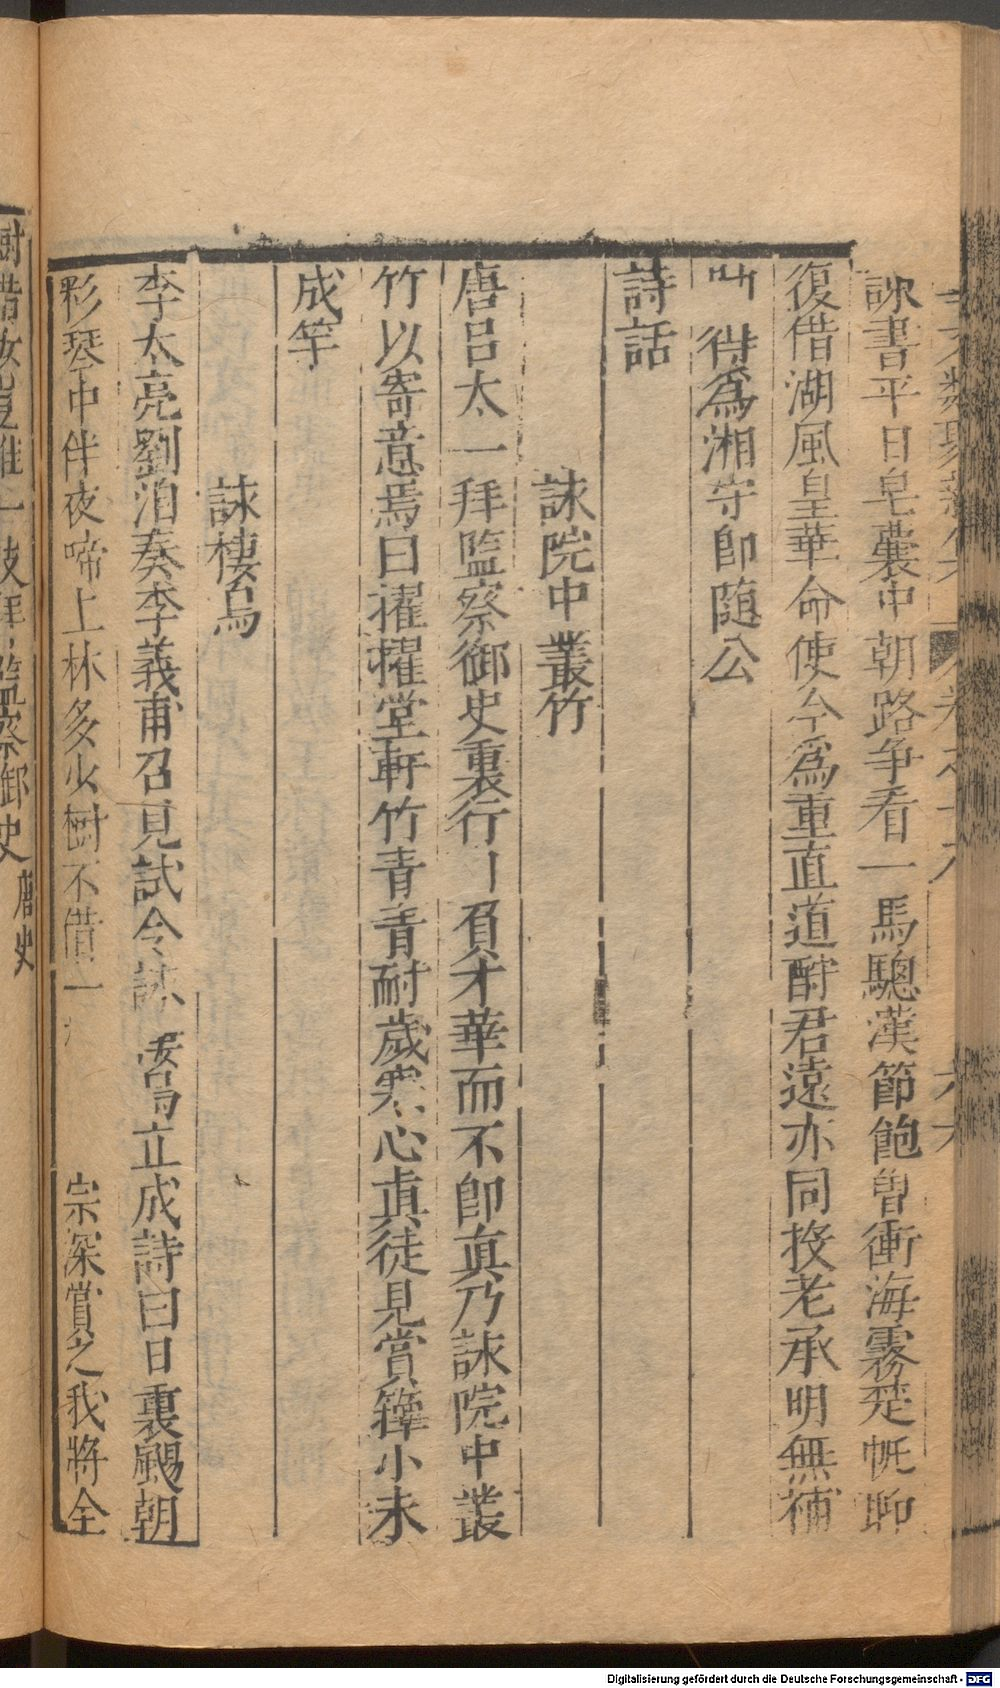 詠書平日皂囊中朝路争看一馬驄漢節飽曾衝海霧楚帆聊
復借湖風皇華命使今為重直道酧君遠亦同投老承明無補
得為湘守即随公
詩話
詠院中叢竹
唐呂太一拜監察御史裏行負才華而不即真乃詠院中叢
竹以寄意焉曰擢擢堂軒竹青青耐歲寒心真徒見賞籜小未
成竿
詠棲烏
李太亮劉洎奏李義甫召見試令詠烏立成詩曰日裏颺朝
彩琴中伴夜啼上林多少樹不借一宗深賞之我將全
樹借汝豈惟一枝拜監察御史唐史
Digitalisierung gefördert durch die Deutsche Forschungsgemeinschaft - DFG